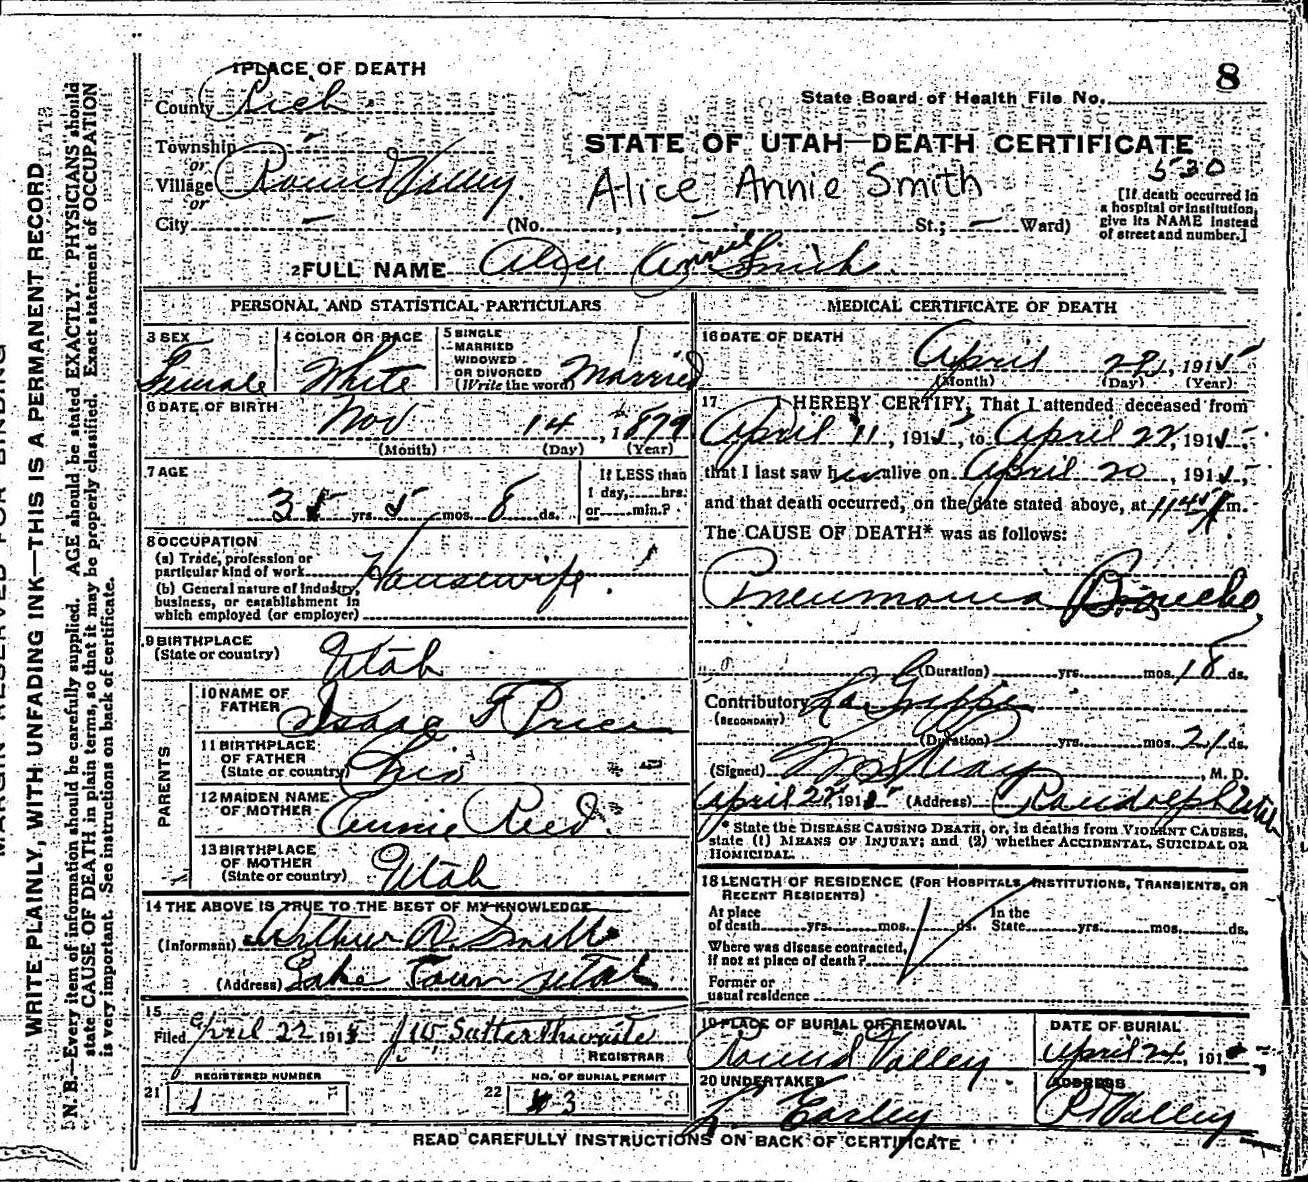 8
1 PLACE OF DEATH
County Rich.
State Board of Health File No.
Township
or
Village Round Valley.
or
City
STATE OF UTAH—DEATH CERTIFICATE
530
Alice Annie Smith
[If death occurred in
a hospital or institution,
give its NAME instead
of street and number.]
(No. , St.; — Ward)
2 FULL NAME Alice Annie Smith
PERSONAL AND STATISTICAL PARTICULARS
3 SEX
Female
4 COLOR OR RACE
White
5 SINGLE
MARRIED
WIDOWED
OR DIVORCED
(Write the word) Married
6 DATE OF BIRTH
Nov 14, 1879
(Month) (Day) (Year)
7 AGE
35 yrs. 5 mos. 8 ds.
If LESS than
1 day, hrs.
or min.?
8 OCCUPATION
(a) Trade, profession or
particular kind of work Housewife.
(b) General nature of industry,
business, or establishment in
which employed (or employer)
9 BIRTHPLACE
(State or country) Utah
PARENTS
10 NAME OF
FATHER Isaac F Price
11 BIRTHPLACE
OF FATHER
(State or country) Ohio
12 MAIDEN NAME
OF MOTHER Annie Reed.
13 BIRTHPLACE
OF MOTHER
(State or country) Utah
14 THE ABOVE IS TRUE TO THE BEST OF MY KNOWLEDGE
(Informant) Arthur R. Smith
(Address) Lake Town Utah
15
Filed April 22 1915 J W Satterthwaite
REGISTRAR
REGISTERED NUMBER
21 1
NO. OF BURIAL PERMIT
22 3
MEDICAL CERTIFICATE OF DEATH
16 DATE OF DEATH
April 22, 1915
(Month) (Day) (Year)
17 I HEREBY CERTIFY, That I attended deceased from
April 11, 1915, to April 22, 1915,
that I last saw her alive on April 20, 1915,
and that death occurred, on the date stated above, at 11 45 m.
The CAUSE OF DEATH* was as follows:
Pneumonia Broncho
(Duration) yrs. mos. 18 ds.
Contributory La Grippe
(SECONDARY)
(Duration) yrs. mos. 21 ds.
(Signed) , M. D.
April 22, 1915 (Address) Randolph Utah
* State the DISEASE CAUSING DEATH, or, in deaths from VIOLENT CAUSES,
state (1) MEANS OF INJURY; and (2) whether ACCIDENTAL, SUICIDAL OR
HOMICIDAL.
18 LENGTH OF RESIDENCE (FOR HOSPITALS, INSTITUTIONS, TRANSIENTS, OR
RECENT RESIDENTS)
At place
of death yrs. mos. ds.
In the
State yrs. mos. ds.
Where was disease contracted,
if not at place of death?
Former or
usual residence
19 PLACE OF BURIAL OR REMOVAL
Round Valley
DATE OF BURIAL
April 24, 191
20 UNDERTAKER
L. Earley
ADDRESS
R Valley
READ CAREFULLY INSTRUCTIONS ON BACK OF CERTIFICATE
MARGIN RESERVED FOR BINDING
WRITE PLAINLY, WITH UNFADING INK—THIS IS A PERMANENT RECORD
N. B.—Every item of information should be carefully supplied. AGE should be stated EXACTLY. PHYSICIANS should
state CAUSE OF DEATH in plain terms, so that it may be properly classified. Exact statement of OCCUPATION
is very important. See instructions on back of certificate.